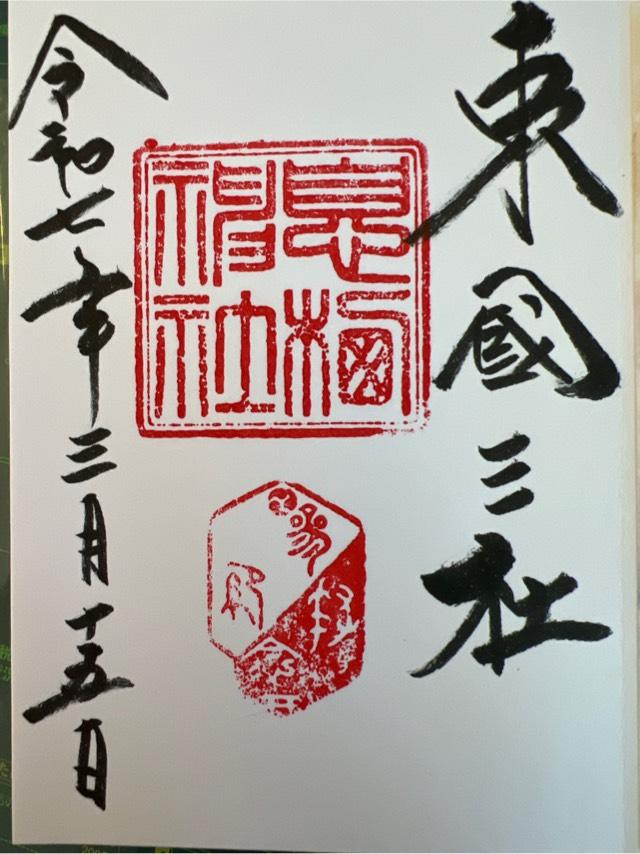 東國三社
息栖
神社
令和七年三月十五日